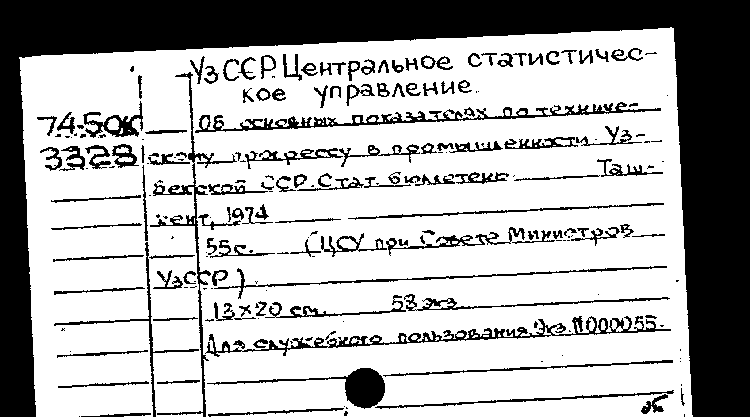 УзССР. Центральное статистичес-
кое управление.
74-5ОК Об основных показателях по техниче-
3328 скому прогрессу в промышленности Уз-
бекской ССР. Стат. бюллетень Таш-
кент, 1974
55с. (ЦСУ при Совете Министров
УзССР)
13×20 см. 58 экз.
Для служебного пользования. Экз. N000055.